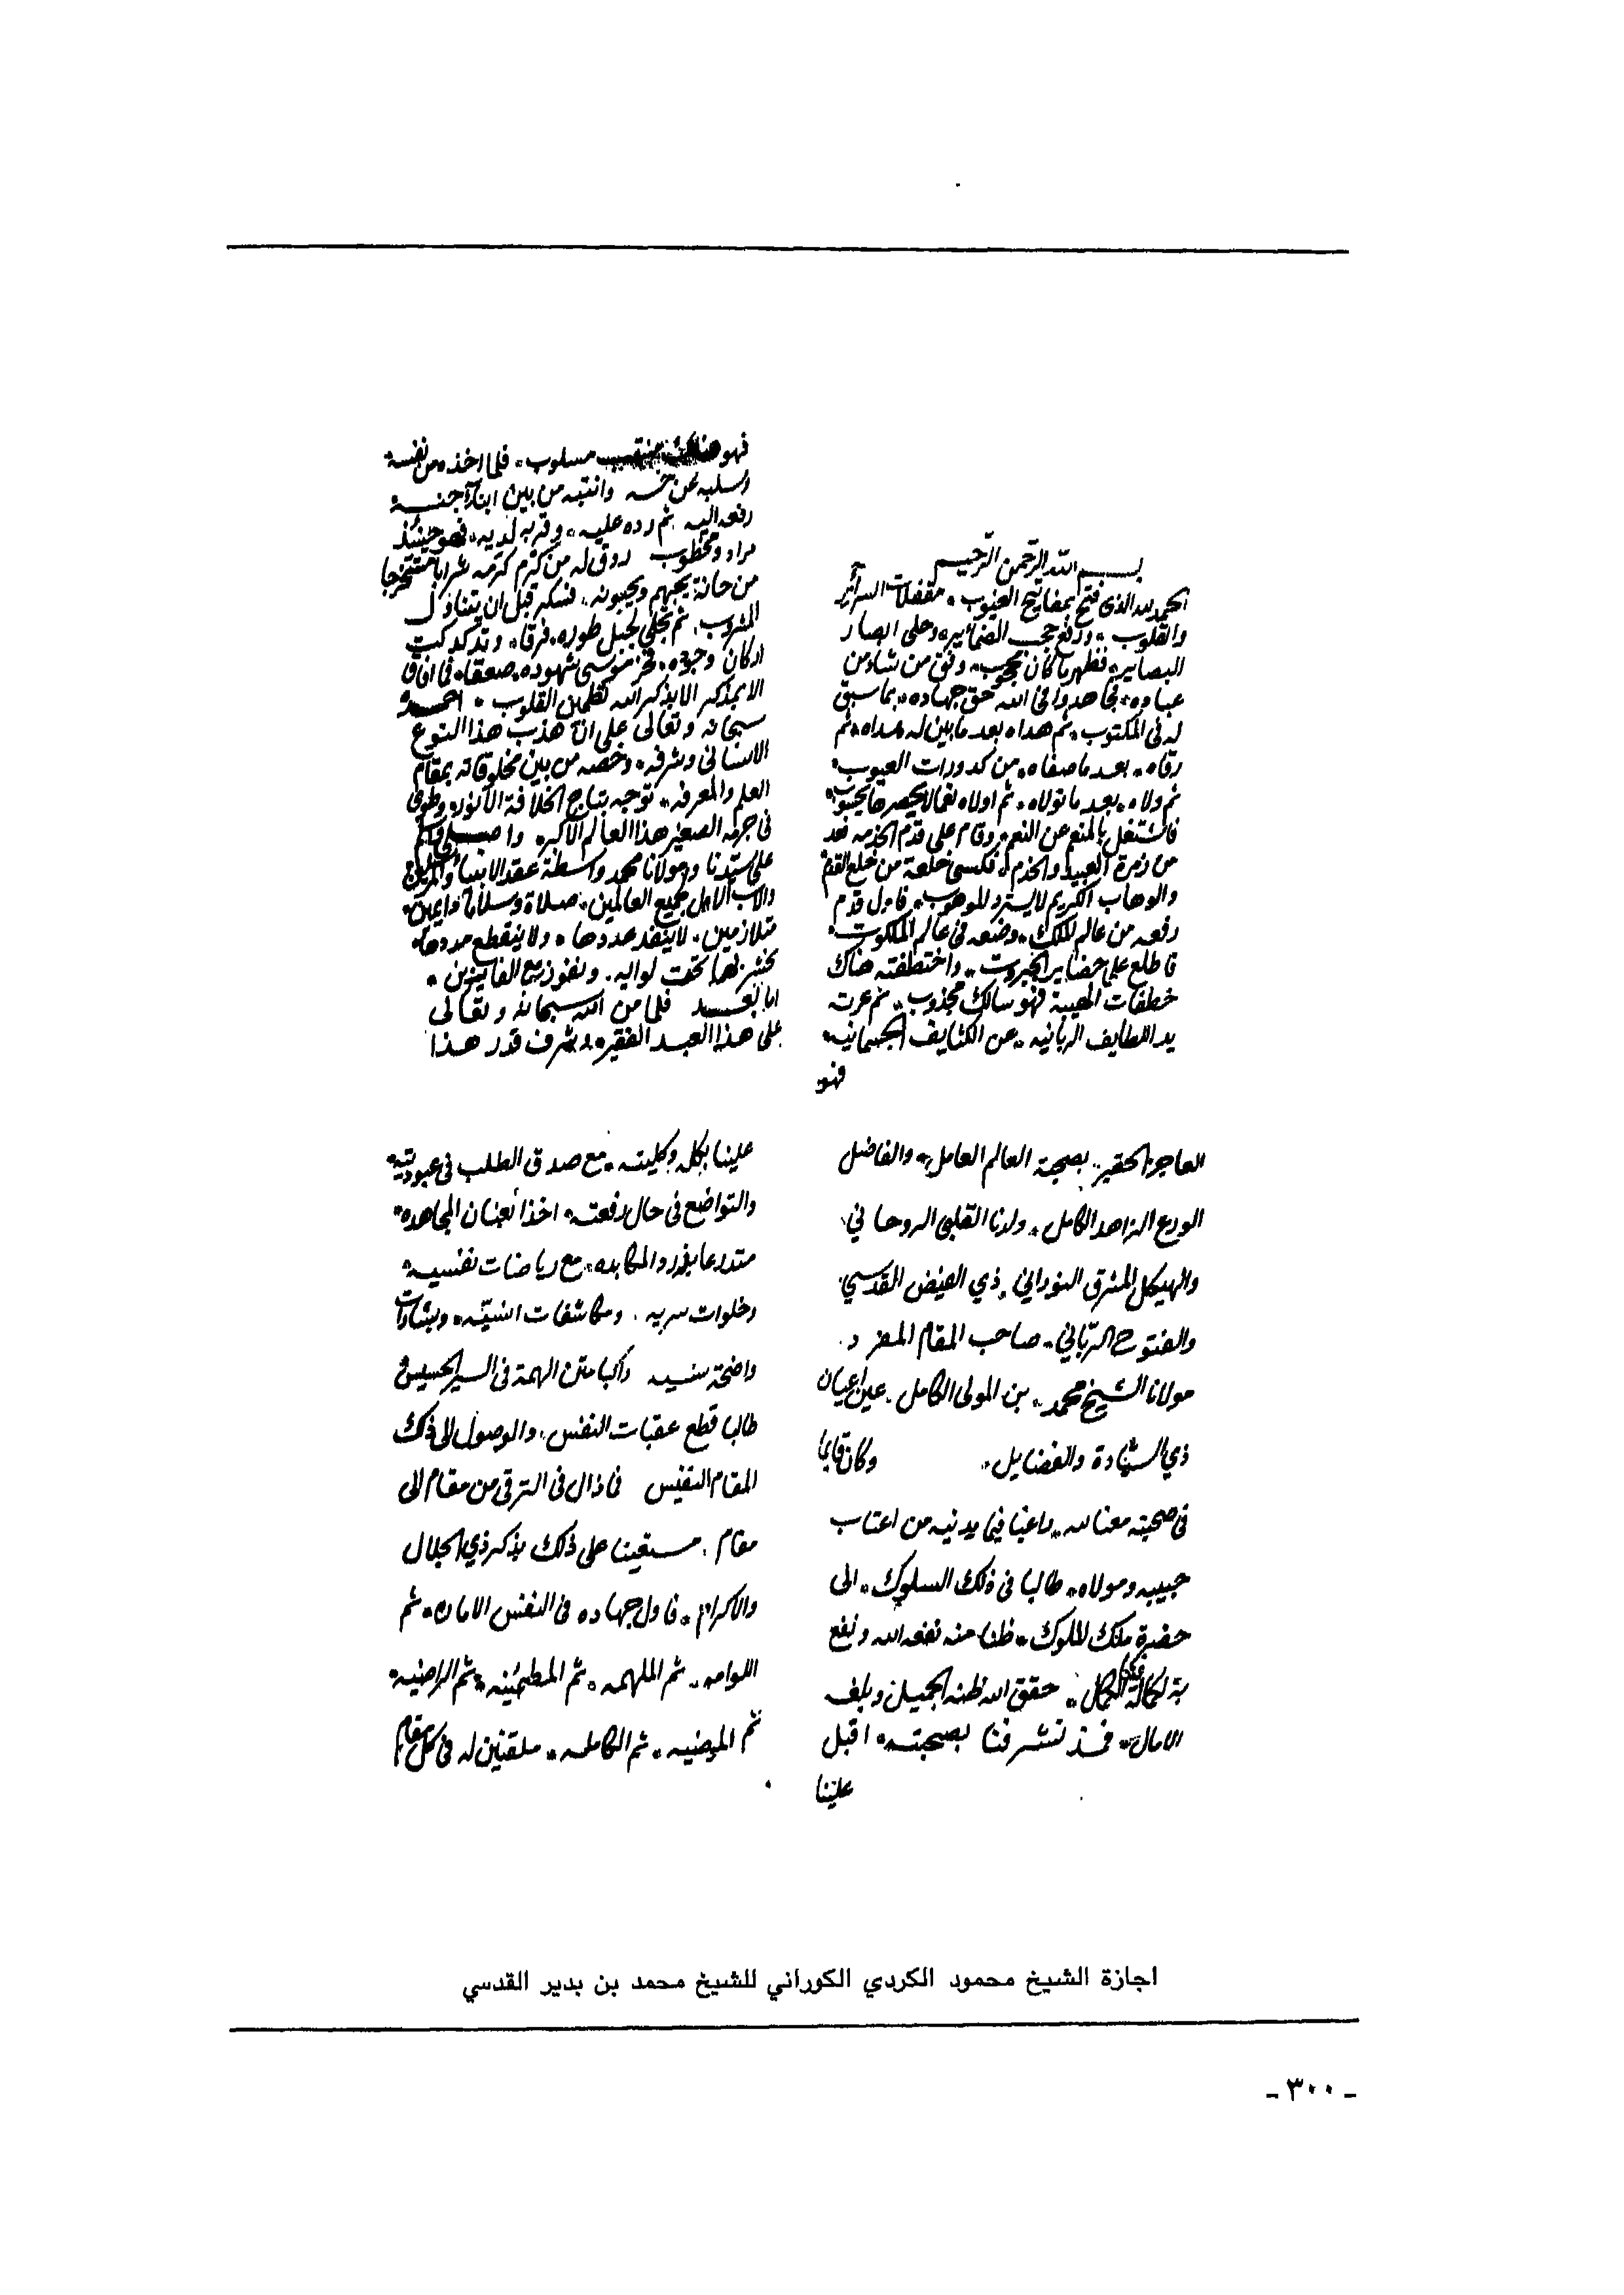 بسم الله الرحمن الرحيم
الحمد لله الذى فتح بمفاتيح الغيوب مقفلات السرائر
والقلوب ورفع حجب الضمائر وجلى ابصار
البصاير فظهر ما كان محجوب ووفق من شاء من
عباده فجاهدوا فى الله حق جهاده بما سبق
له فى المكتوب ثم هداه بعد ما بين له هداه ثم
رقاه بعد ما صفاه من كدورات العيوب
ثم ولاه بعد ما تولاه ثم اولاه نعما
فاشتغل بالمنعم عن النعم وقام على قدم الخدمه فعد
من زمرة العبيد والخدم فكسى خلعة من خلع القدم
والوهاب الكريم لا يسترد الموهوب فاول قدم
رفعه من عالم الملك وضعه فى عالم الملكوت
فاطلع على حضاير الجبروت واختطفته هناك
خطفات الهيبة فهو سالك مجذوب ثم عرت
يد اللطايف الربانيه عن الكثايف الجسمانيه
فهو
فهو مسلوب فلما اخذه من نفسه
وسلبه عن حسه وانتبه من بين ابناء جنسه
رفعه اليه ثم رده عليه وقربه لديه فهو حينئذ
مراد ومخطوب روق له من كرم كرمه شرابا
من حانة يحبهم ويحبونه فسكر قبل ان يتناول
المشروب ثم تجلى لجبل طوره فرقا وتدكدكت
اركان وجوده فخر موسى شهوده صعقا فى افاق
الا بذكر الله تطمئن القلوب احمده
سبحانه وتعالى على ان هذب هذا النوع
الانسانى وشرفه وخصه من بين مخلوقاته بمقام
العلم والمعرفه توجه بتاج الخلافة الانور وطوى
فى جرمه الصغير هذا العالم الاكبر واصلى واسلم
على سيدنا ومولانا محمد واسطة عقد الانبياء والمرسلين
والاب الاول لجميع العالمين صلاة وسلاما دايمين
متلازمين لا ينفد عددها ولا ينقطع مددها
نحشر بهما تحت لوايه ونفوز مع الفايزين
اما بعد فلما من الله سبحانه وتعالى
على هذا العبد الفقير وشرف قدر هذا
العاجز الحقير بصحبة العالم العامل والفاضل
الورع الزاهد الكامل ولدنا القلبى الروحاني
والهيكل المشرق النوراني ذي الفيض القدسي
والفتوح الرباني صاحب المقام المفرد
مولانا الشيخ محمد بن المولى الكامل عين اعيان
ذي الشهادة والفضايل وكان
فى صحبته معنا لله راغبا فيما يدنيه من اعتاب
حبيبه ومولاه طالبا فى ذلك السلوك الى
حضرة ملك الملوك ظنا منه نفعه الله ونفع
به حقق الله ظنه الجميل وبلغه
الامال فمذ تشرفنا بصحبته اقبل
علينا
علينا بكله وكليته مع صدق الطلب فى عبوديته
والتواضع فى حال رفعته اخذا بعنان المجاهده
متدرعا والمكابده مع رياضات نفسيه
وخلوات سريه ومكاشفات انسيه وبشارات
واضحة سنيه راكبا متن الهمة فى السير الحسيس
طالبا قطع عقبات النفس والوصول الى ذلك
المقام النفيس فما زال فى الترقى من مقام الى
مقام مستعينا على ذلك بذكر ذي الجلال
والاكرام فاول جهاده فى النفس الاماره ثم
اللوامه ثم الملهمه ثم المطمئنه ثم الراضيه
ثم المرضيه ثم الكامله ملقنين له فى كل مقام
اجازة الشيخ محمود الكردي الكوراني للشيخ محمد بن بدير القدسي
- ٣٠٠ -